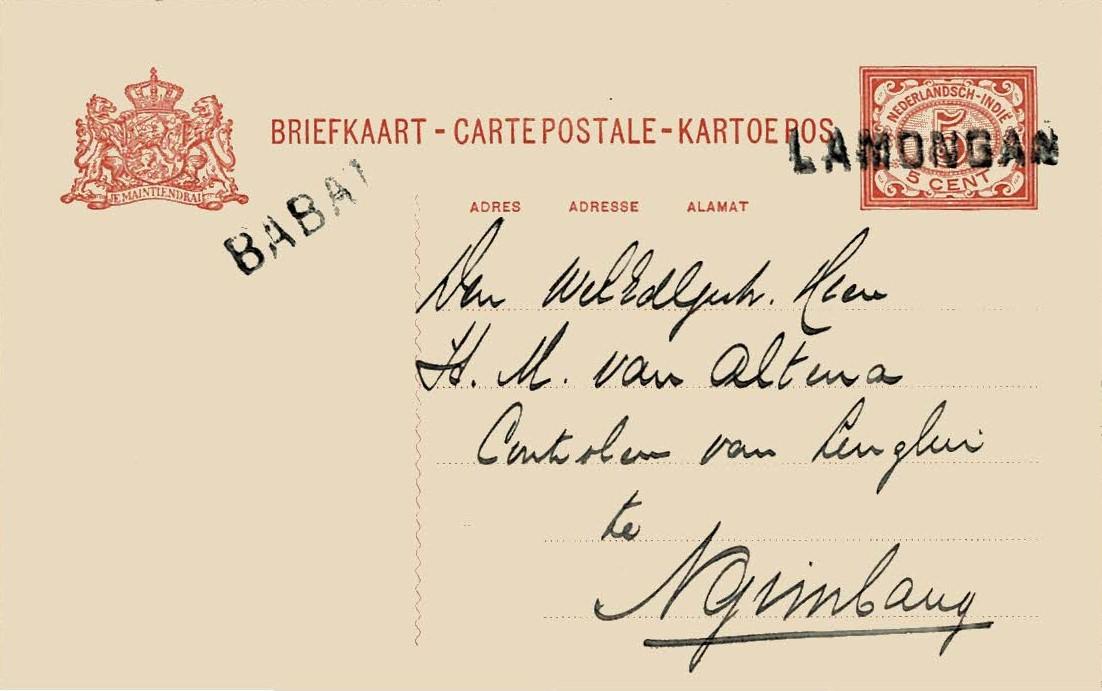 BRIEFKAART - CARTE POSTALE - KARTOE POS
NEDERLANDSCH-INDIË
5
5 CENT
LAMONGAN
JE MAINTIENDRAI
BABAT
ADRES ADRESSE ALAMAT
Den WelEdlgestr. Heer
H. M. van Altena
Controleur van Lengkir
te
Ngimbang